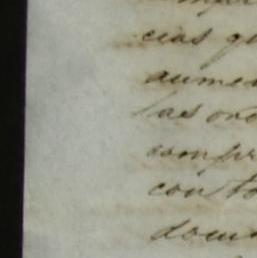 cias qu
aumen
las ord
compr
con to
docum